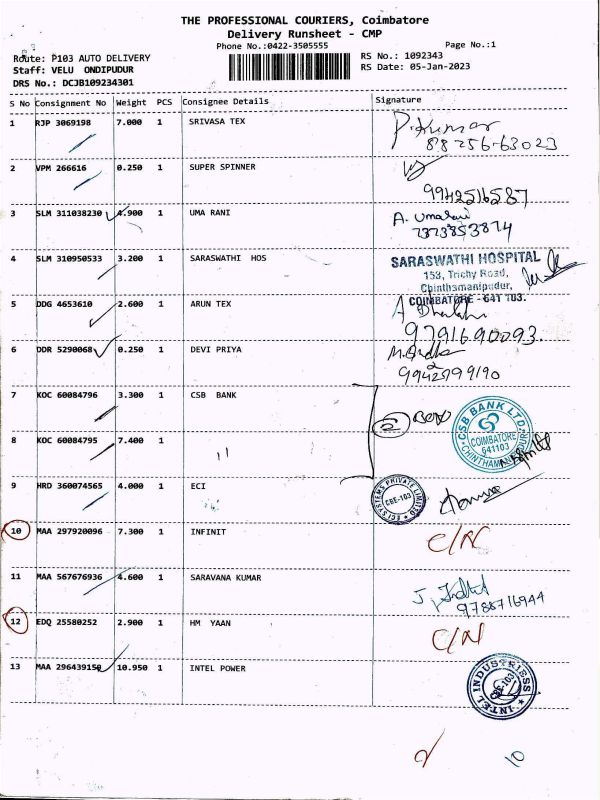 THE PROFESSIONAL COURIERS, Coimbatore
Delivery Runsheet - CMP
Phone No.:0422-3505555
Page No.:1
Route: P103 AUTO DELIVERY
RS No.: 1092343
Staff: VELU ONDIPUDUR
RS Date: 05-Jan-2023
DRS No.: DCJB109234301
S No Consignment No Weight PCS Consignee Details Signature
1 RJP 3069198 7.000 1 SRIVASA TEX P.Kumar
88256-63023
2 VPM 266616 0.250 1 SUPER SPINNER
9942516587
3 SLM 311038230 4.900 1 UMA RANI A. Umarani
7373853874
4 SLM 310950533 3.200 1 SARASWATHI HOS SARASWATHI HOSPITAL
153, Trichy Road,
Chinthamanipudur,
COIMBATORE - 641 103.
5 DDG 4653610 2.600 1 ARUN TEX
9791690093.
6 DDR 5290068 0.250 1 DEVI PRIYA
9942599190
7 KOC 60084796 3.300 1 CSB BANK
2 BOX
CSB BANK LTD.
COIMBATORE
641103
CHINTHAMANIPUDUR
8 KOC 60084795 7.400 1 "
9 HRD 360074565 4.000 1 ECI
ECI SYSTEMS PRIVATE LIMITED
CBE-103
10 MAA 297920096 7.300 1 INFINIT C/N
11 MAA 567676936 4.600 1 SARAVANA KUMAR
9788716944
12 EDQ 25580252 2.900 1 HM YAAN C/N
13 MAA 296439150 10.950 1 INTEL POWER
INTEL INDUSTRIESS
CBE-103
2
10